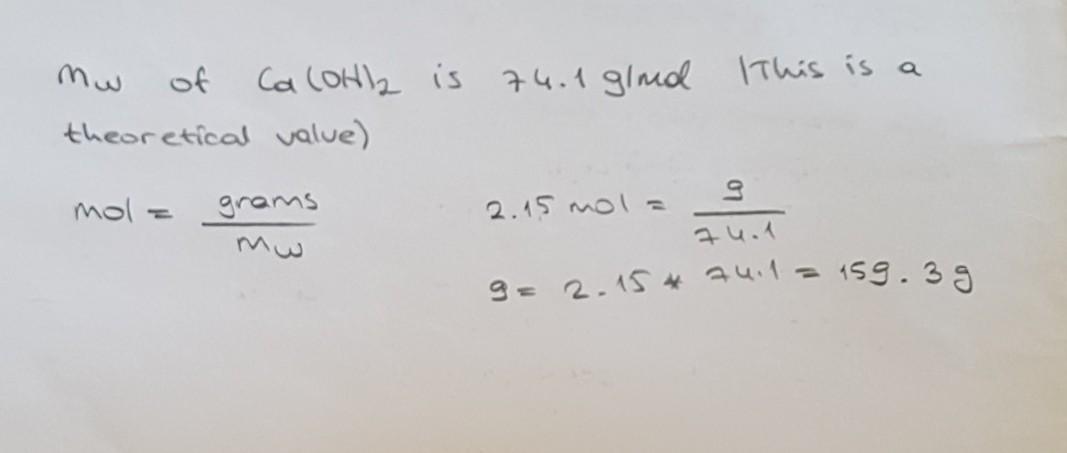 Mw of Ca(OH)2 is 74.1 g/mol (This is a
theoretical value)
mol = grams / Mw
2.15 mol = g / 74.1
g = 2.15 * 74.1 = 159.3 g